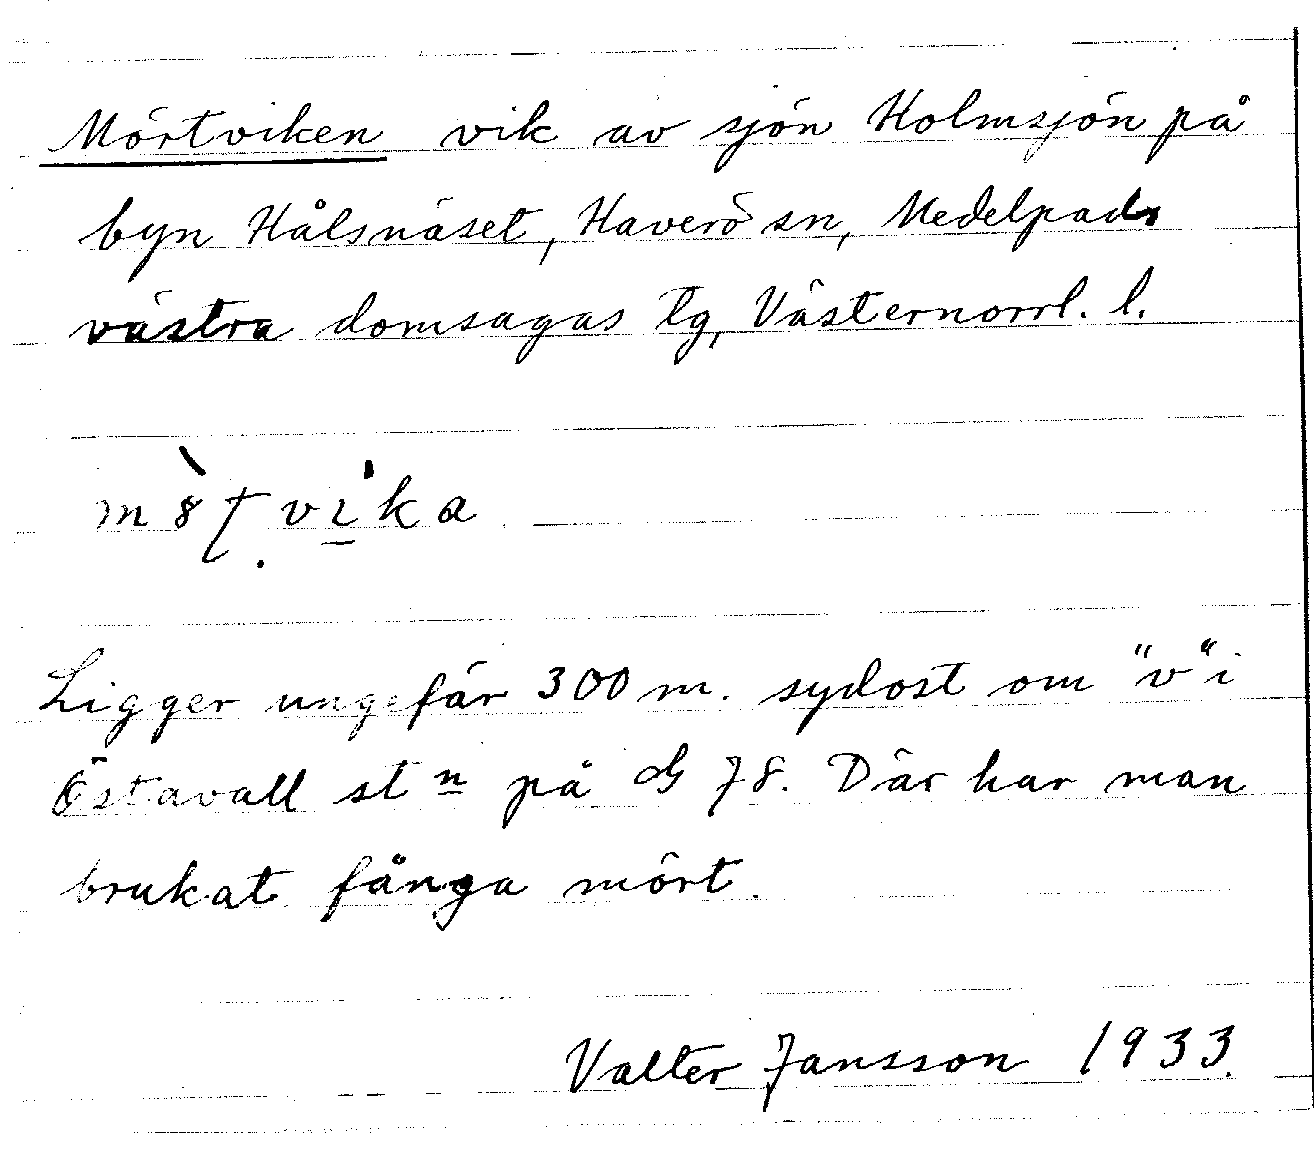 Mörtviken vik av sjön Holmsjön på
byn Hålsnäset, Haverö sn, Medelpads
västra domsagas tg, Västernorrl. l.
Ligger ungefär 300 m. sydost om "v" i
Östavall st n på G 78. Där har man
brukat fånga mört.
Valter Jansson 1933.